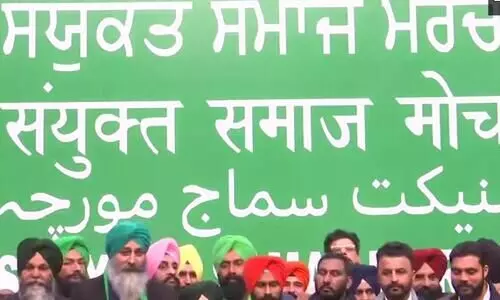 ਸਯੁਕਤ ਸਮਾਜ
संयुक्त समाज मोच
نیکت سماج مورچہ